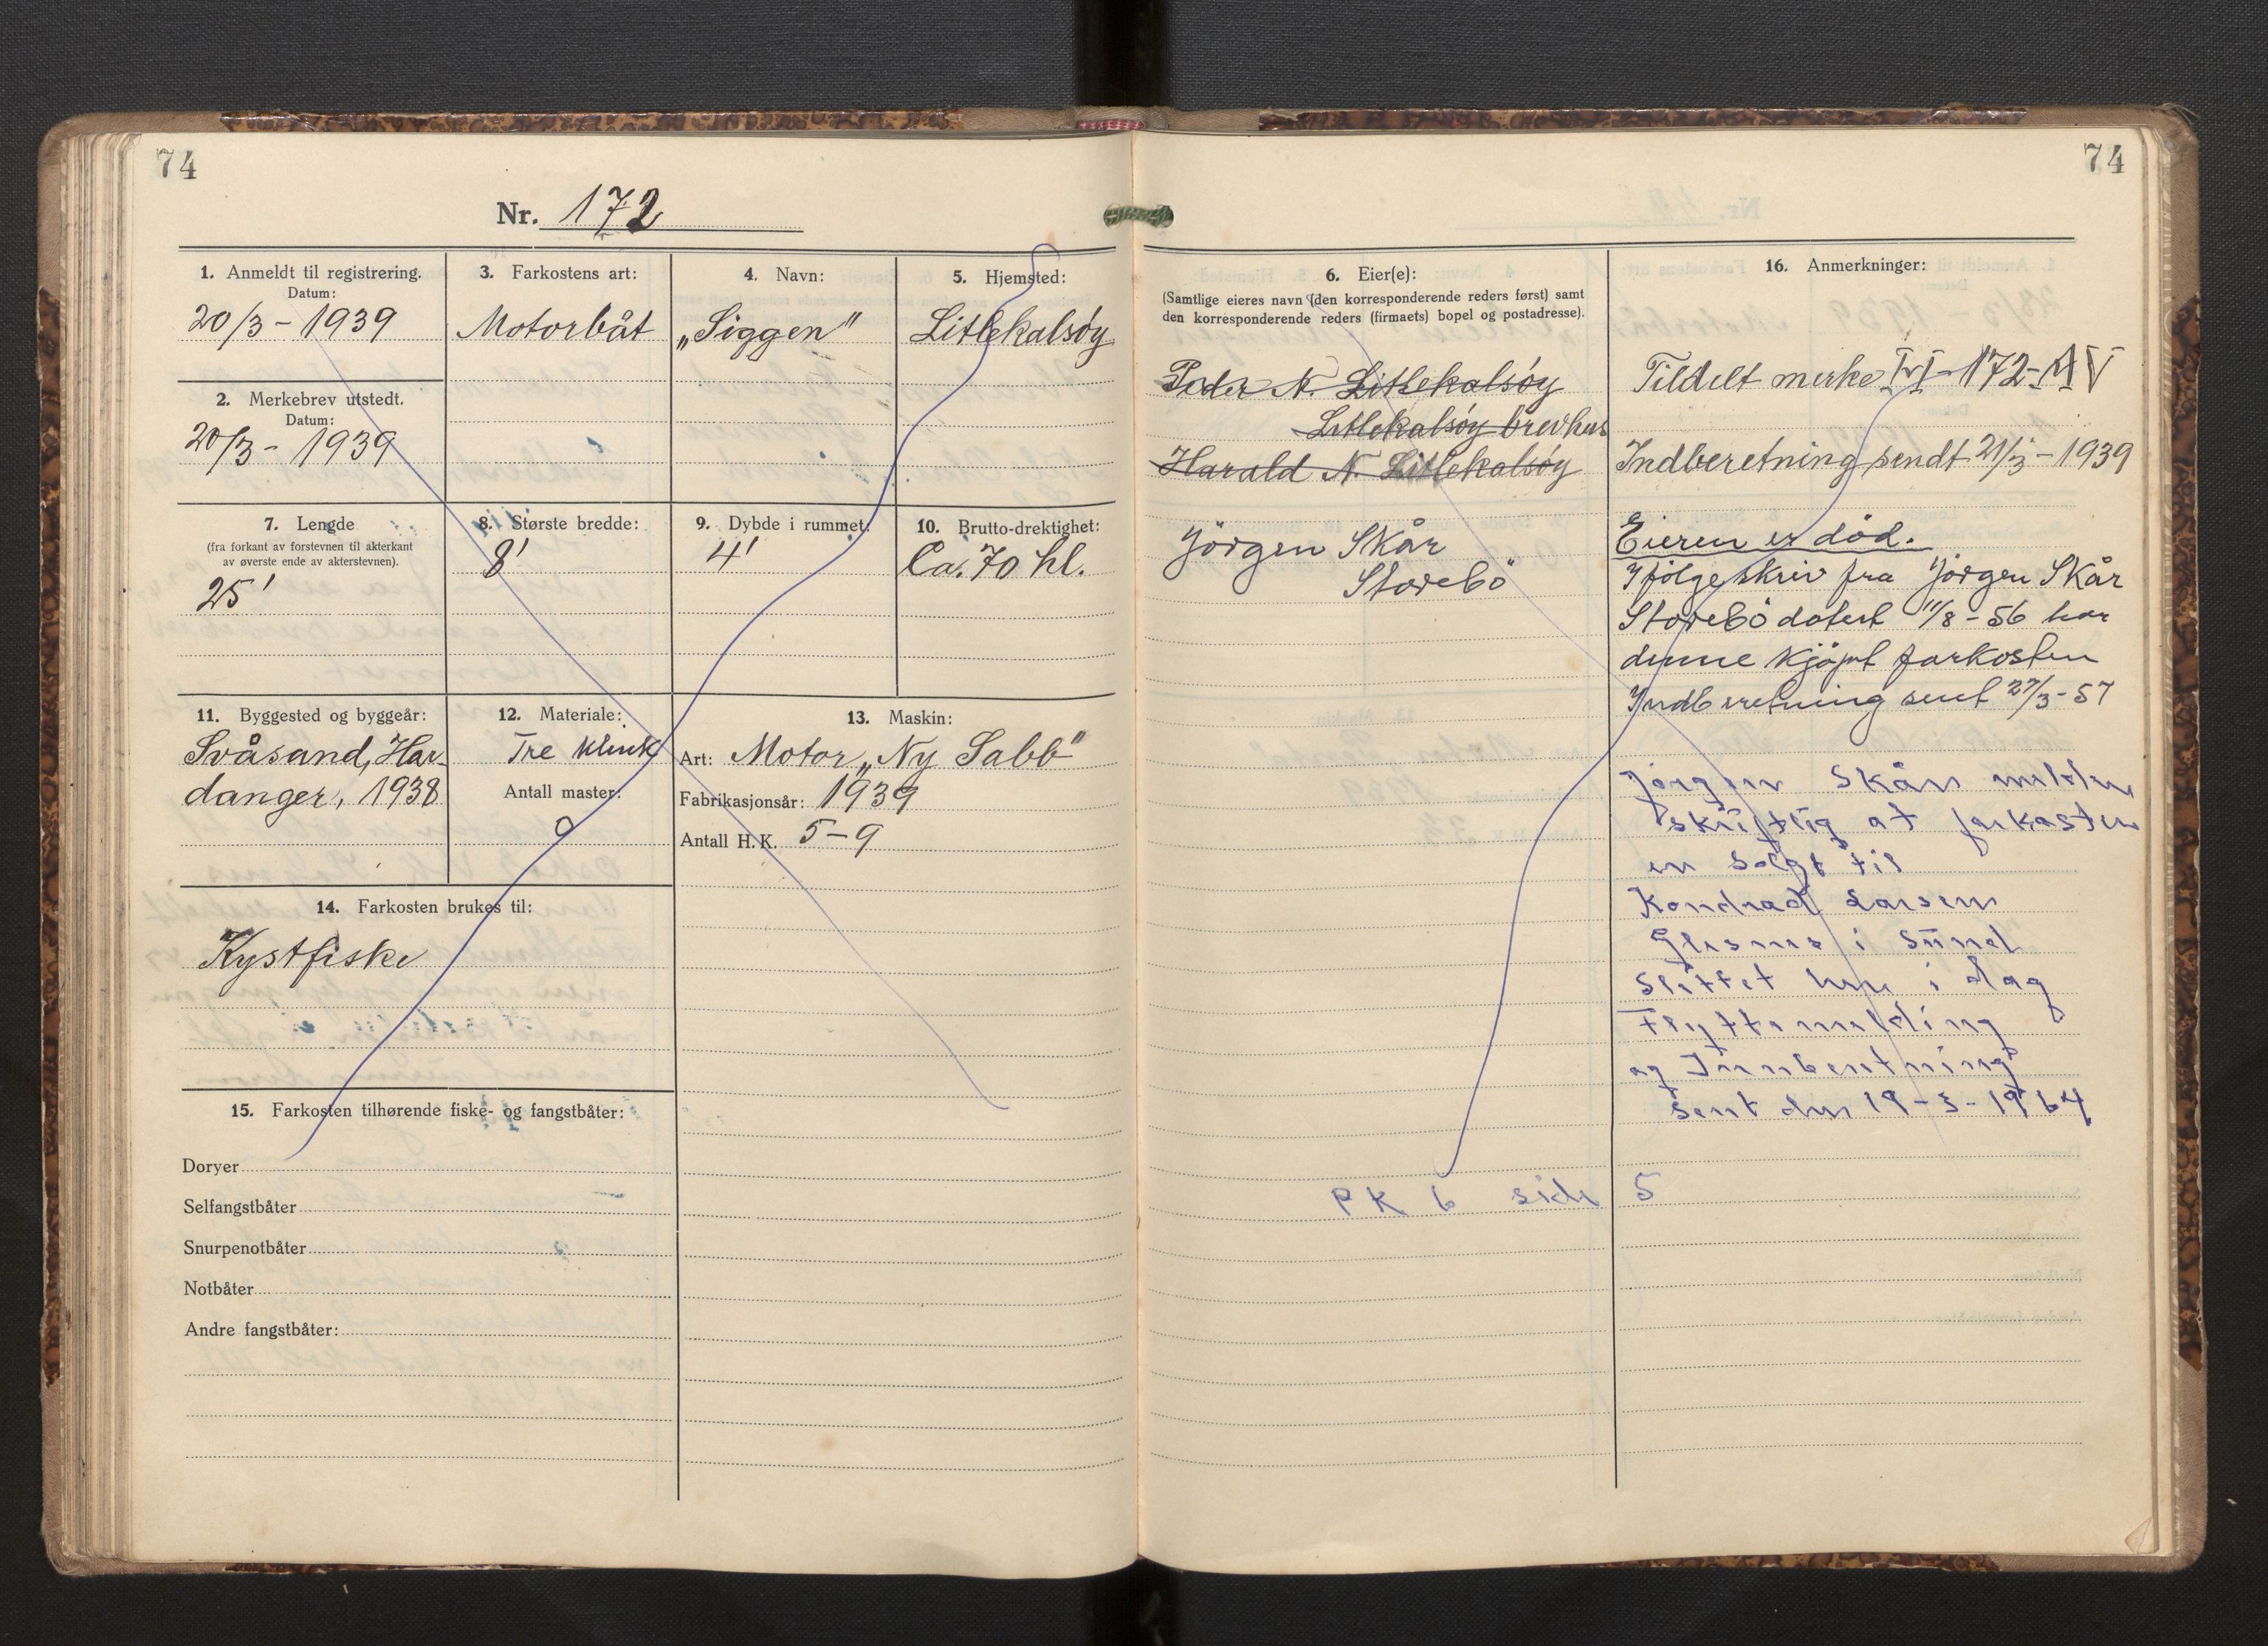 74
74
Nr. 172
1. Anmeldt til registrering.
Datum:
20/3 - 1939
2. Merkebrev utstedt.
Datum:
20/3 - 1939
3. Farkostens art:
Motorbåt
4. Navn:
„Siggen"
5. Hjemsted:
Litlekalsøy
7. Lengde
(fra forkant av forstevnen til akterkant
av øverste ende av akterstevnen).
25'
8. Største bredde:
8'
9. Dybde i rummet:
4'
10. Brutto-drektighet:
Ca. 70 hl.
11. Byggested og byggeår:
Svåsand, Har-
danger, 1938
12. Materiale:
Tre klink
Antall master:
0
13. Maskin:
Art: Motor „Ny Sabb"
Fabrikasjonsår: 1939
Antall H.K. 5-9
14. Farkosten brukes til:
Kystfiske
15. Farkosten tilhørende fiske- og fangstbåter:
Doryer
Selfangstbåter
Snurpenotbåter
Notbåter
Andre fangstbåter:
6. Eier(e):
(Samtlige eieres navn (den korresponderende reders først) samt
den korresponderende reders (firmaets) bopel og postadresse).
Peder N. Litlekalsøy
Litlekalsøy brevhus
Harald N. Litlekalsøy
Jörgen Skår
Storebö
PK 6 side 5
16. Anmerkninger:
Tildelt merke 172-AV
Indberetning sendt 21/3 - 1939
Eieren er död.
Ifölge skriv fra Jörgen Skår
Storebö datert 11/8-56 har
denne kjöpt farkosten
Indberetning sent 27/3-57
Jörgen Skår melder
skriftlig at farkosten
er solgt til
Kondrad Larsen
Glesnes i Sund
Slettet her i dag
Flyttemelding
og Innberetning
sent den 19-3-1964